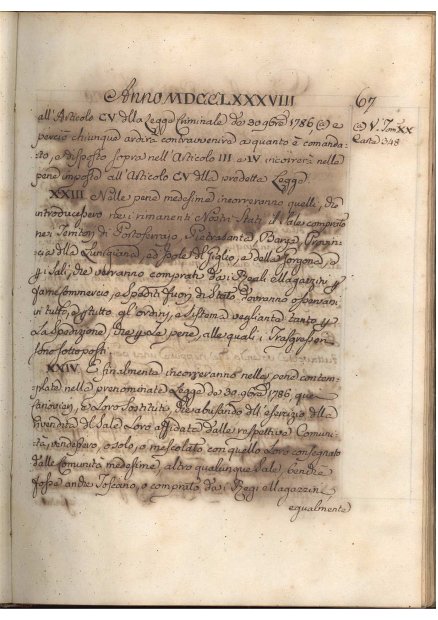 Anno MDCCLXXXVIII
67
all'Articolo CV della Legge Criminale de 30 9bre 1786, (a) e
perciò chiunque ardirà contravvenire a quanto è comanda-
to, e disposto sopra nell'Articolo III e IV incorrerà nelle
pene imposte all'Articolo CV della predetta Legge.
(a) V. Tom XX
Carte 348
XXIII Nelle pene medesime incorreranno quelli, che
introducessero nei rimanenti Nostri Stati il Sale comprato
nei Territori di Portoferrajo, Pietrasanta, Barga, Provin-
cia della Lunigiana, e Isole del Giglio, e della Gorgona, e
p i Sali, che verranno comprati dai Reali Magazzini p
farne commercio, e spediti fuori di Stato dovranno osservarsi
in tutto, e p tutto gli ordini, e sistema vegliante tanto p
la Spedizione, che p le pene, alle quali i Trasgressori
sono sottoposti.
XXIV E finalmente incorreranno nelle pene contem-
plate nella prenominata Legge de 30 9bre 1786, quei
Canovieri, e loro Sostituti, che abusando dell'esercizio della
rivendita del Sale a loro affidata dalle respettive Comuni-
tà, vendessero, o solo, o mescolato con quello loro consegnato
dalle Comunità medesime, altro qualunque Sale, benchè
fosse anche Toscano, o comprato dai Regi Magazzini,
egualmente